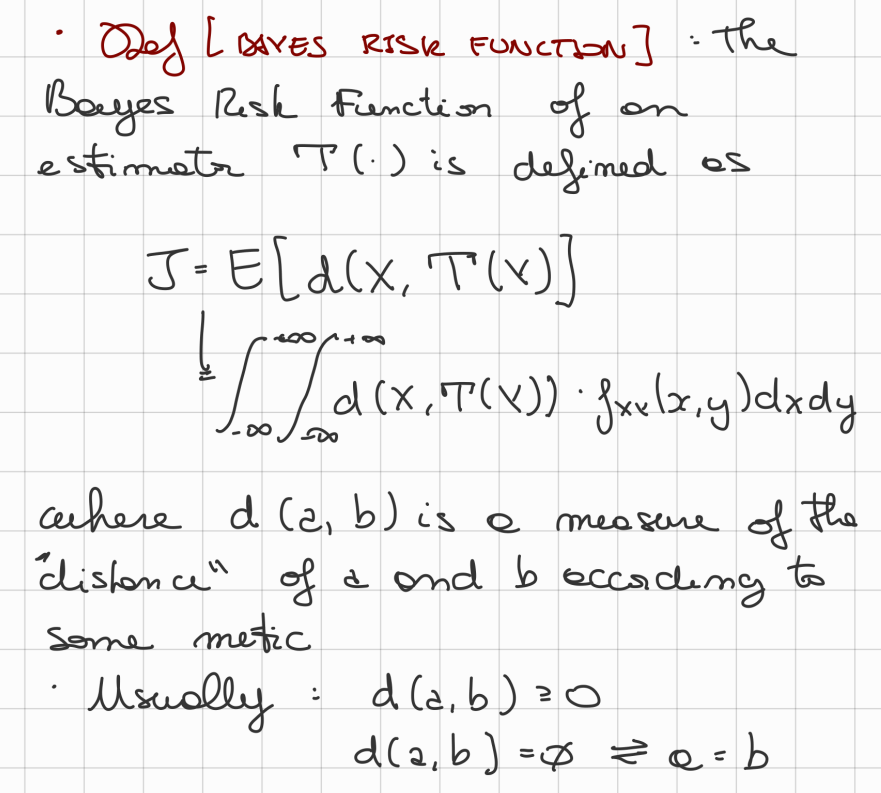 · Def [BAYES RISK FUNCTION] : the
Bayes Risk Function of an
estimator T(·) is defined as
J = E[d(X, T(Y)]
↓= ∫_{-∞}^{+∞} ∫_{-∞}^{+∞} d(X, T(Y)) · f_{XY}(x, y) dx dy
where d(a, b) is a measure of the
"distance" of a and b according to
some metic
· Usually : d(a, b) ≥ 0
d(a, b) = ∅ ⇌ a = b